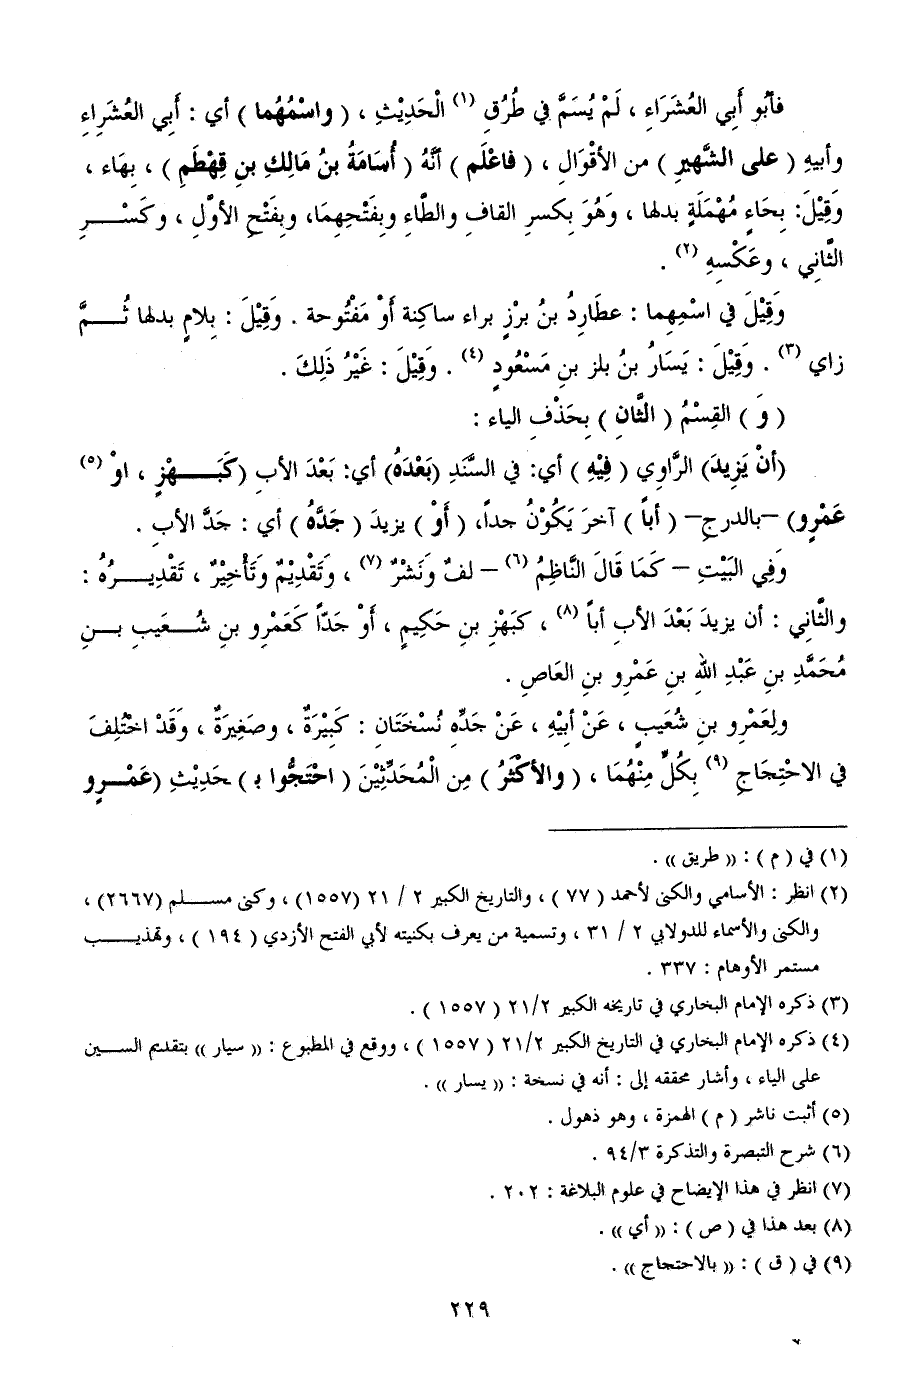 فأبُو أَبِي العُشَرَاءِ ، لَمْ يُسَمَّ فِي طُرُقِ (١) الْحَدِيْثِ ، ( واسْمُهُما ) أي : أَبِي العُشَراءِ
وأبيهِ ( على الشَّهِيرِ ) من الأقْوَالِ ، ( فاعْلَمِ ) أنَّهُ ( أُسَامَةُ بنُ مَالِكِ بنِ قِهْطَمِ ) ، بِهَاء ،
وَقِيْلَ: بِحَاءٍ مُهْمَلَةٍ بدلها ، وَهُوَ بِكسرِ القافِ والطَّاءِ وبِفَتْحِهِما، وبِفَتْحِ الأوَّلِ ، وكَسْرِ
الثَّانِي ، وعَكْسِهِ (٢) .
وَقِيْلَ فِي اسْمِهِما : عطَارِدُ بنُ برْزٍ براء ساكِنة أوْ مَفْتُوحة . وَقِيْلَ : بِلامٍ بدلها ثُمَّ
زاي (٣) . وَقِيْلَ : يَسَارُ بنُ بلز بنِ مَسْعُودٍ (٤) . وَقِيْلَ : غَيْرُ ذَلِكَ .
( وَ ) القِسْمُ ( الثَّانِ ) بِحَذْفِ الياء :
(أنْ يَزِيدَ) الرَّاوِي ( فِيْهِ ) أي: فِي السَّنَدِ (بَعْدَهُ) أي: بَعْدَ الأبِ (كَبَهْزٍ ، اوْ (٥)
عَمْرٍو) –بالدرجِ– ( أباً ) آخرَ يَكُوْنُ جداً، ( أَوْ ) يزيدَ ( جَدَّهُ ) أي : جَدَّ الأبِ .
وَفِي البَيْتِ – كَمَا قَالَ النَّاظِمُ (٦) – لفٌ ونَشْرٌ (٧) ، وتَقْدِيْمٌ وتَأْخِيْرٌ ، تَقْدِيرُهُ :
والثَّانِي : أن يزيدَ بَعْدَ الأبِ أباً (٨) ، كبَهْزِ بنِ حَكِيمٍ ، أَوْ جَدّاً كَعَمْرِو بنِ شُعَيبِ بنِ
مُحَمَّدِ بنِ عَبْدِ اللهِ بنِ عَمْرِو بنِ العَاصِ .
ولِعَمْرِو بنِ شُعَيبٍ ، عَنْ أبيْهِ ، عَنْ جَدِّهِ نُسْخَتَانِ : كَبِيْرَةٌ ، وصَغِيرَةٌ ، وَقَدْ اخْتُلِفَ
فِي الاحْتِجَاجِ (٩) بِكُلٍّ مِنْهُمَا ، ( والأكْثَرُ ) مِنَ الْمُحَدِّثِيْنَ ( احْتَجُّوا بِ ) حَدِيْثِ (عَمْرٍو
(١) في ( م ) : (( طريق )) .
(٢) انظر : الأسامي والكنى لأحمد ( ٧٧ ) ، والتاريخ الكبير ٢ / ٢١ (١٥٥٧) ، وكنى مسلم (٢٦٦٧) ،
والكنى والأسماء للدولابي ٢ / ٣١ ، وتسمية من يعرف بكنيته لأبي الفتح الأزدي ( ١٩٤ ) ، وتهذيب
مستمر الأوهام : ٣٣٧ .
(٣) ذكره الإمام البخاري في تاريخه الكبير ٢١/٢ ( ١٥٥٧ ) .
(٤) ذكره الإمام البخاري في التاريخ الكبير ٢١/٢ ( ١٥٥٧ ) ، ووقع في المطبوع : (( سيار )) بتقديم السين
على الياء ، وأشار محققه إلى : أنه في نسخة : (( يسار )) .
(٥) أثبت ناشر ( م ) الهمزة ، وهو ذهول .
(٦) شرح التبصرة والتذكرة ٩٤/٣ .
(٧) انظر في هذا الإيضاح في علوم البلاغة : ٢٠٢ .
(٨) بعد هذا في ( ص ) : (( أي )) .
(٩) في ( ق ) : (( بالاحتجاج )) .
٢٢٩